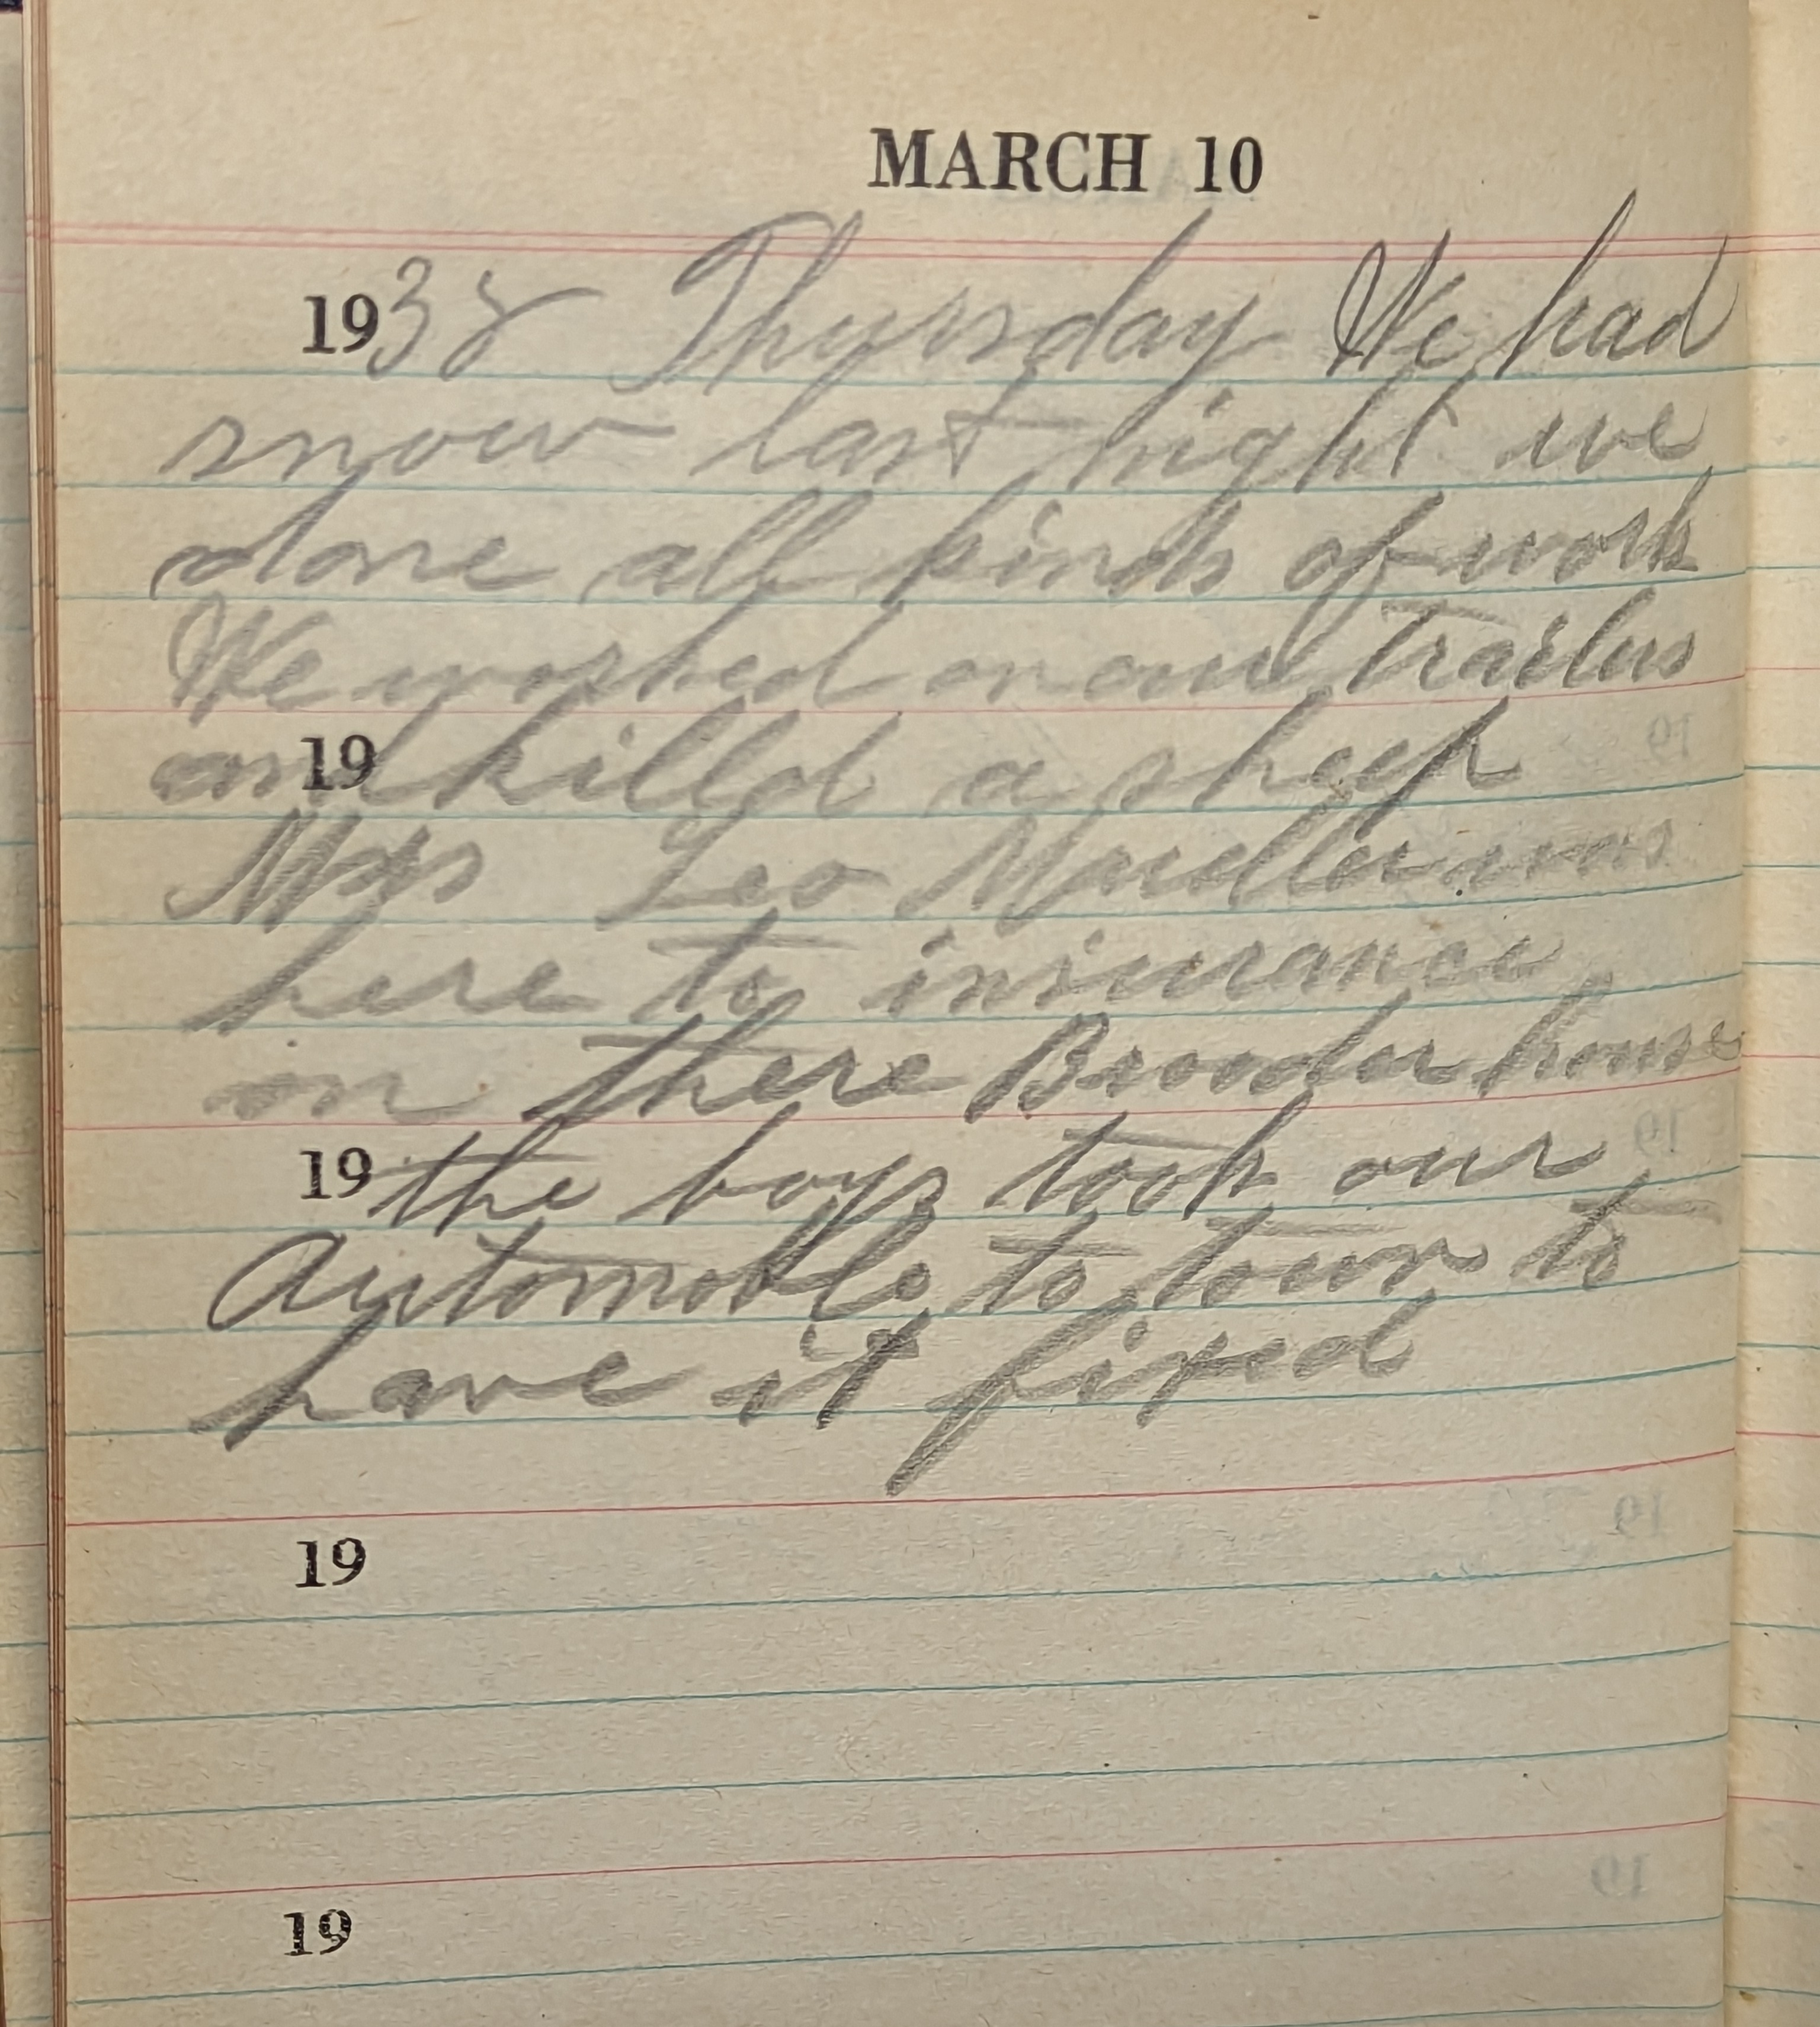 MARCH 10
1938 Thursday We had
snow last night we
done all kinds of work
We worked on our Trailer
19 and killed a sheep
Mrs Leo Mueller was
here to insurance
on there Brooder house
19 the boys took our
Automoble to town to
have it fixed
19
19